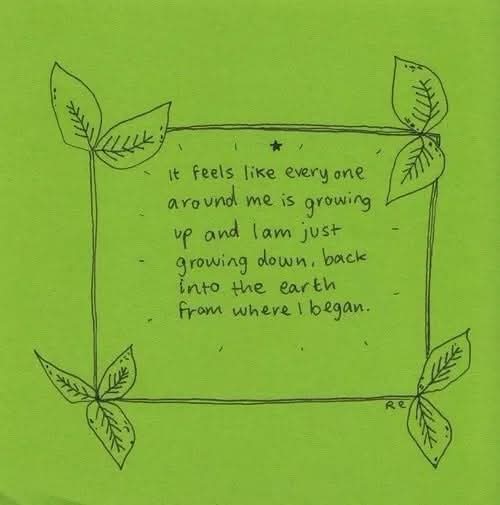 It feels like everyone
around me is growing
up and I am just
growing down, back
into the earth
from where I began.
RE